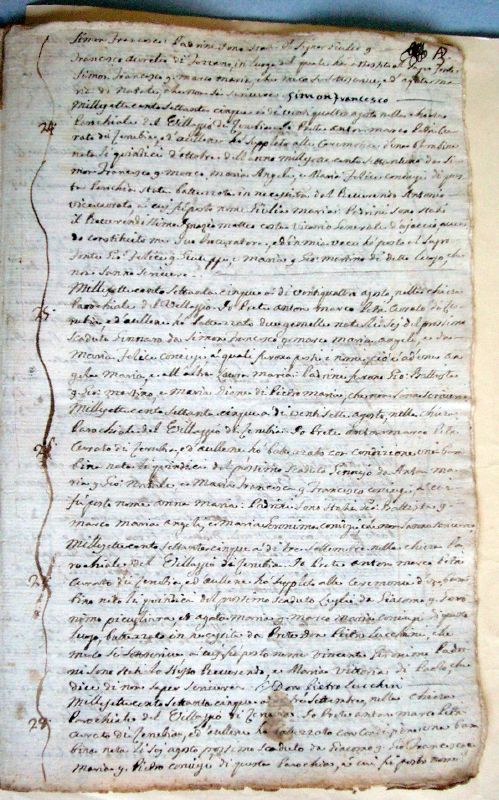 Simon Francesco Padrini sono stati
Francesco Aurelio di Zerzano, in luogo del quale ha
Simon Francesco q. Marco Maria, che meco si sottoscrive, ed Agata Ma-
ria di Natale, che non sa scrivere Simon Francesco
24 Millesettecento settanta cinque a di vinti quattro agosto nella chiesa
Parochiale del Villaggio di Zerubia. Io Prete Anton Marco Pita Cu-
rato di Zerubia, ed Aullene ho supplito alle ceremonie d'una bambina
nata li quindici d'ottobre dell'anno millesettecento settantuno da Si-
mon Francesco q. Marco Maria Angeli, e Maria Felice conjugi di questa
Parochia stata battezzata in necessità dal Reverendo Antonio
vicecurato, a cui fu posto nome Giulia Maria: Padrini sono stati
il Reverendissimo Vicario Generale d'Ajaccio
constituito suo Procuratore, ed in mia voce ha posto al Sagro
Fonte Gio Felice q. Giuseppe, e Maria q. Gio Martino di detto luogo, che
non sanno scrivere
25 Millesettecento settanta cinque a di vinti quattro agosto, nella chiesa
Parochiale del Villaggio. Io Prete Anton Marco Pita Curato di Ze-
rubia, ed Aullene ho battezzato due gemelle nate li sei del prossimo
scaduto Gennaro da Simon Francesco q. Marco Maria Angeli, e da
Maria Felice conjugi, a quali furono posti i nomi, cioè ad una An-
gela Maria, e all'altra Laura Maria: Padrini furono Gio Battista
q. Gio Martino, e Maria Diana di Pietro Maria, che non sanno scrivere
26 Millesettecento settanta cinque a di venti sette agosto, nella chiesa
Parochiale del Villaggio di Zerubia. Io Prete Anton Marco Pita
Curato di Zerubia, ed Aullene ho battezzato con condizione una bam-
bina nata li quindici del prossimo scaduto Gennajo da Anton Ma-
ria q. Gio Natale, e Maria Francesca q. Francesco conjugi, a cui
fu posto nome Anna Maria: Padrini sono stati Gio Battista q.
Marco Maria Angeli e Maria Geronima conjugi che non sanno scrivere
27 Millesettecento settanta cinque a di tre settembre nella chiesa Pa-
rochiale del Villaggio di Zerubia. Io Prete Anton Marco Pita
Curato di Zerubia, ed Aullene ho supplito alle ceremonie d'un bam-
bino nato li quindici del prossimo scaduto Luglio da Giacomo q.
ed Agata Maria q. Marco Maria conjugi di questo
luogo, battezzato in necessità da Prete Don Pietro Lucchini, che
meco si sottoscrive, a cui fu posto nome Vincente Geronimo Padri-
ni sono stati lo stesso Reverendo, e Maria Vittoria di Paolo che
dice di non saper scrivere P. Don Pietro Lucchini
28 Millesettecento settanta cinque a di tre settembre, nella chiesa
Parochiale del Villaggio di Zerubia. Io Prete Anton Marco Pita
Curato di Zerubia, ed Aullene ho battezzato con una bam-
bina nata li sei agosto prossimo scaduto da Giacomo q. Gio Francesco e
Maria q. Pietro conjugi di questa Parochia, a cui fu posto nome